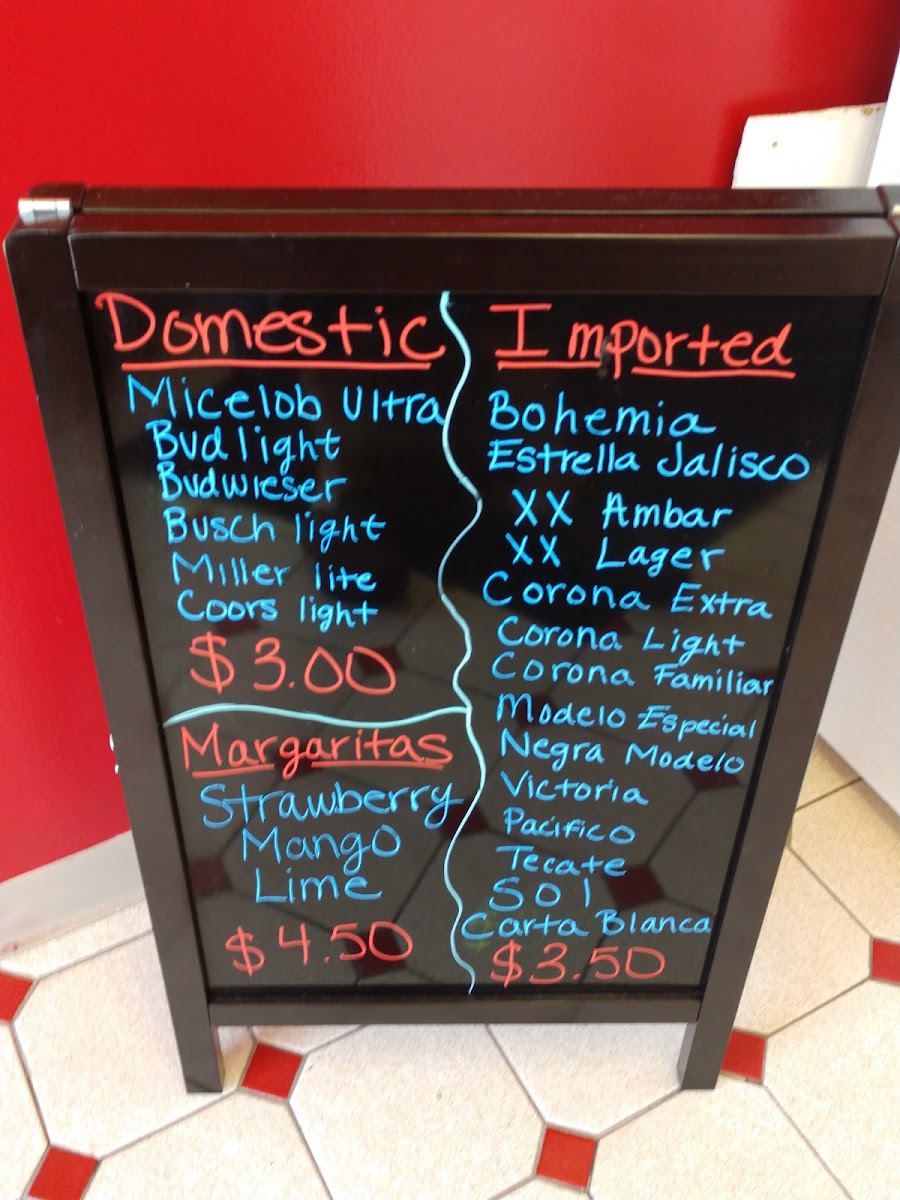 Domestic
Micelob Ultra
Bud light
Budwieser
Busch light
Miller lite
Coors light
$3.00
Margaritas
Strawberry
Mango
Lime
$4.50
Imported
Bohemia
Estrella Jalisco
XX Ambar
XX Lager
Corona Extra
Corona Light
Corona Familiar
Modelo Especial
Negra Modelo
Victoria
Pacifico
Tecate
Sol
Carta Blanca
$3.50